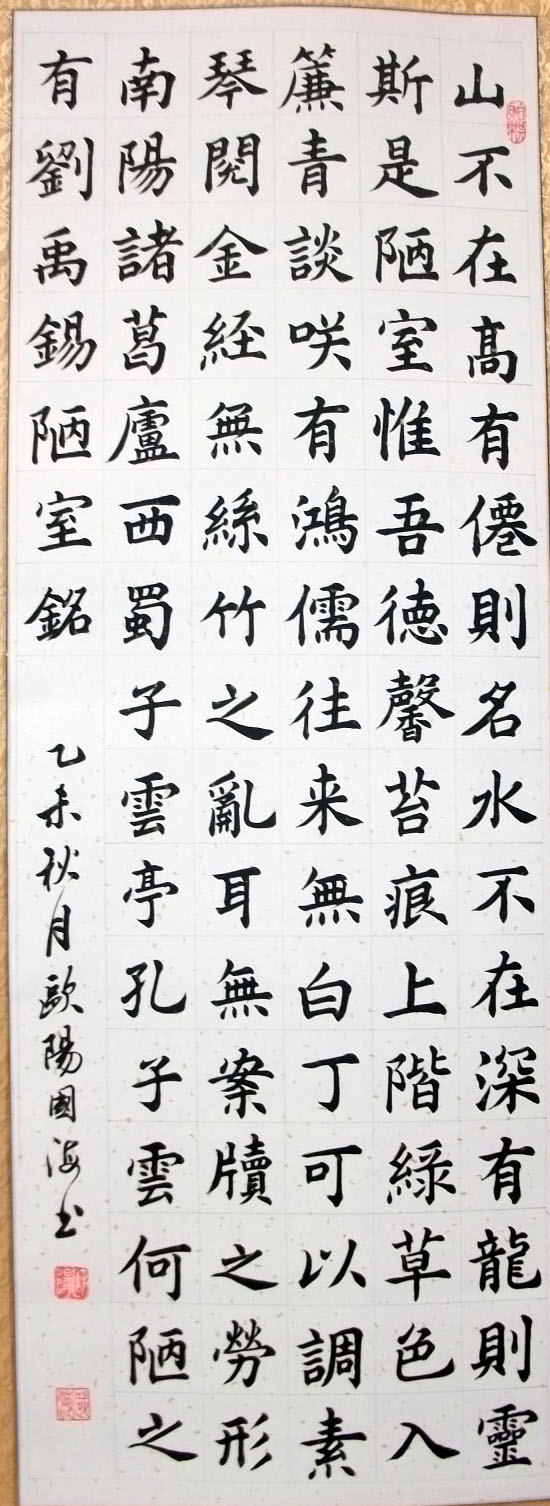 山不在高有僊則名水不在深有龍則靈
斯是陋室惟吾德馨苔痕上階綠草色入
簾青談咲有鴻儒往来無白丁可以調素
琴閱金経無絲竹之亂耳無案牘之勞形
南陽諸葛廬西蜀子雲亭孔子雲何陋之
有劉禹錫陋室銘
乙未秋月歐陽國海书